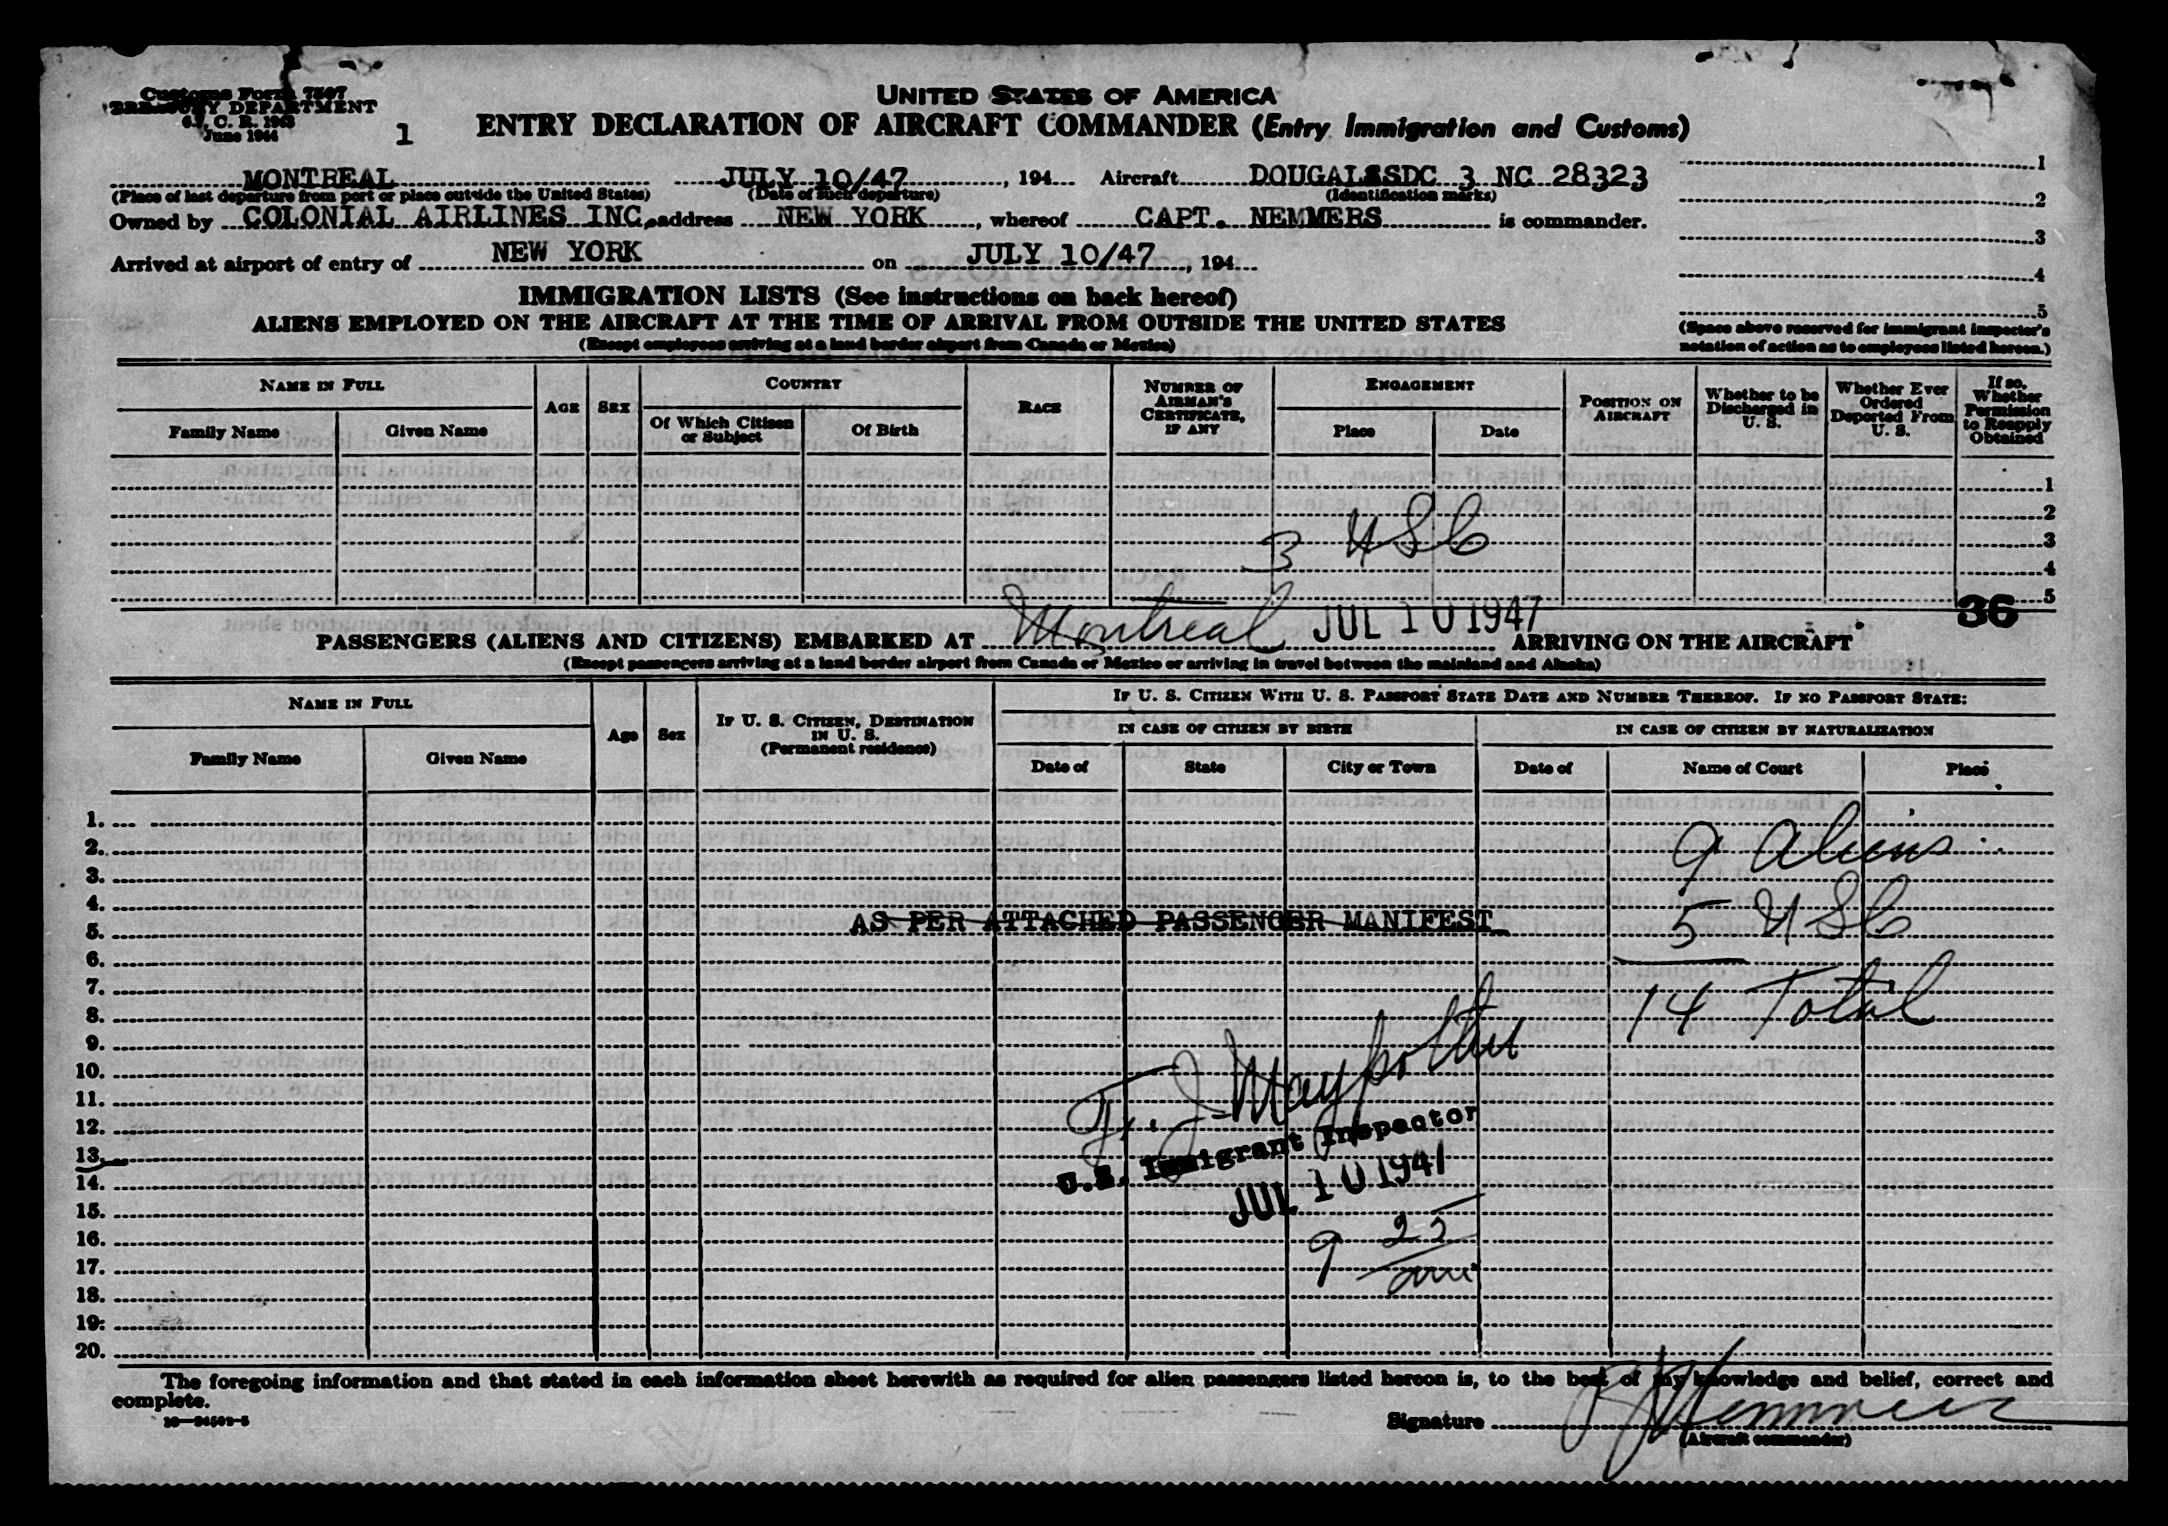 Customs Form 7507
TREASURY DEPARTMENT
June 1944
1
UNITED STATES OF AMERICA
ENTRY DECLARATION OF AIRCRAFT COMMANDER (Entry Immigration and Customs)
MONTREAL JULY 10/47, 194 Aircraft DOUGALESDC 3 NC 28323
(Place of last departure from port or place outside the United States) (Date of such departure) (Identification marks)
Owned by COLONIAL AIRLINES INC, address NEW YORK, whereof CAPT. NEMMERS is commander.
Arrived at airport of entry of NEW YORK on JULY 10/47, 194
1
2
3
4
5
(Space above reserved for immigrant inspector's
notation of action as to employees listed hereon.)
IMMIGRATION LISTS (See instructions on back hereof)
ALIENS EMPLOYED ON THE AIRCRAFT AT THE TIME OF ARRIVAL FROM OUTSIDE THE UNITED STATES
(Except employees arriving at a land border airport from Canada or Mexico)
NAME IN FULL
Family Name Given Name
AGE SEX
COUNTRY
Of Which Citizen or Subject Of Birth
RACE
NUMBER OF AIRMAN'S CERTIFICATE, IF ANY
ENGAGEMENT
Place Date
POSITION ON AIRCRAFT
Whether to be Discharged in U. S.
Whether Ever Ordered Deported From U. S.
If so, Whether Permission to Reapply Obtained
1
2
3
4
5
3 USC
36
PASSENGERS (ALIENS AND CITIZENS) EMBARKED AT Montreal JUL 10 1947 ARRIVING ON THE AIRCRAFT
(Except passengers arriving at a land border airport from Canada or Mexico or arriving in travel between the mainland and Alaska)
NAME IN FULL
Family Name Given Name
Age Sex
IF U. S. CITIZEN, DESTINATION IN U. S.
(Permanent residence)
IF U. S. CITIZEN WITH U. S. PASSPORT STATE DATE AND NUMBER THEREOF. IF NO PASSPORT STATE:
IN CASE OF CITIZEN BY BIRTH IN CASE OF CITIZEN BY NATURALIZATION
Date of State City or Town Date of Name of Court Place
1.
2. 9 Aliens
3.
4.
5. AS PER ATTACHED PASSENGER MANIFEST 5 USC
6.
7.
8. 14 Total
9.
10.
11.
12.
13.
14.
15.
16.
17.
18.
19.
20.
U.S. Immigrant Inspector
JUL 10 1947
9 25 am
The foregoing information and that stated in each information sheet herewith as required for alien passengers listed hereon is, to the best of my knowledge and belief, correct and
complete.
Signature Nemmers
(Aircraft commander)